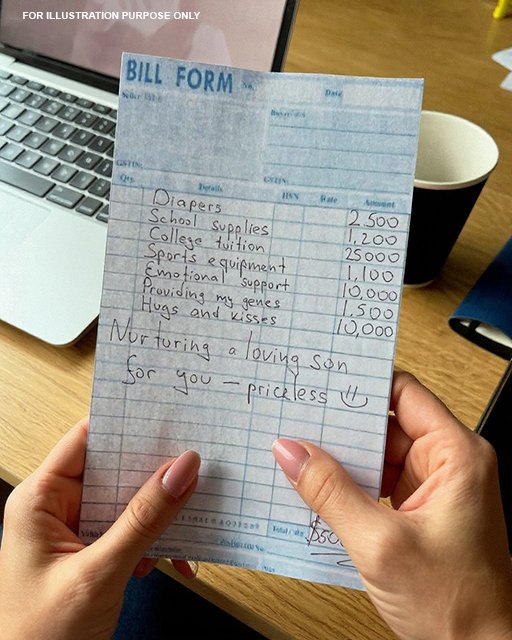 FOR ILLUSTRATION PURPOSE ONLY
BILL FORM No.
Date
GSTIN:
GSTIN:
Qty. Details HSN Rate Amount
Diapers 2,500
School supplies 1,200
College tuition 25000
Sports equipment 1,100
Emotional support 10,000
Providing my genes 1,500
Hugs and kisses 10,000
Nurturing a loving son
for you – priceless
Total